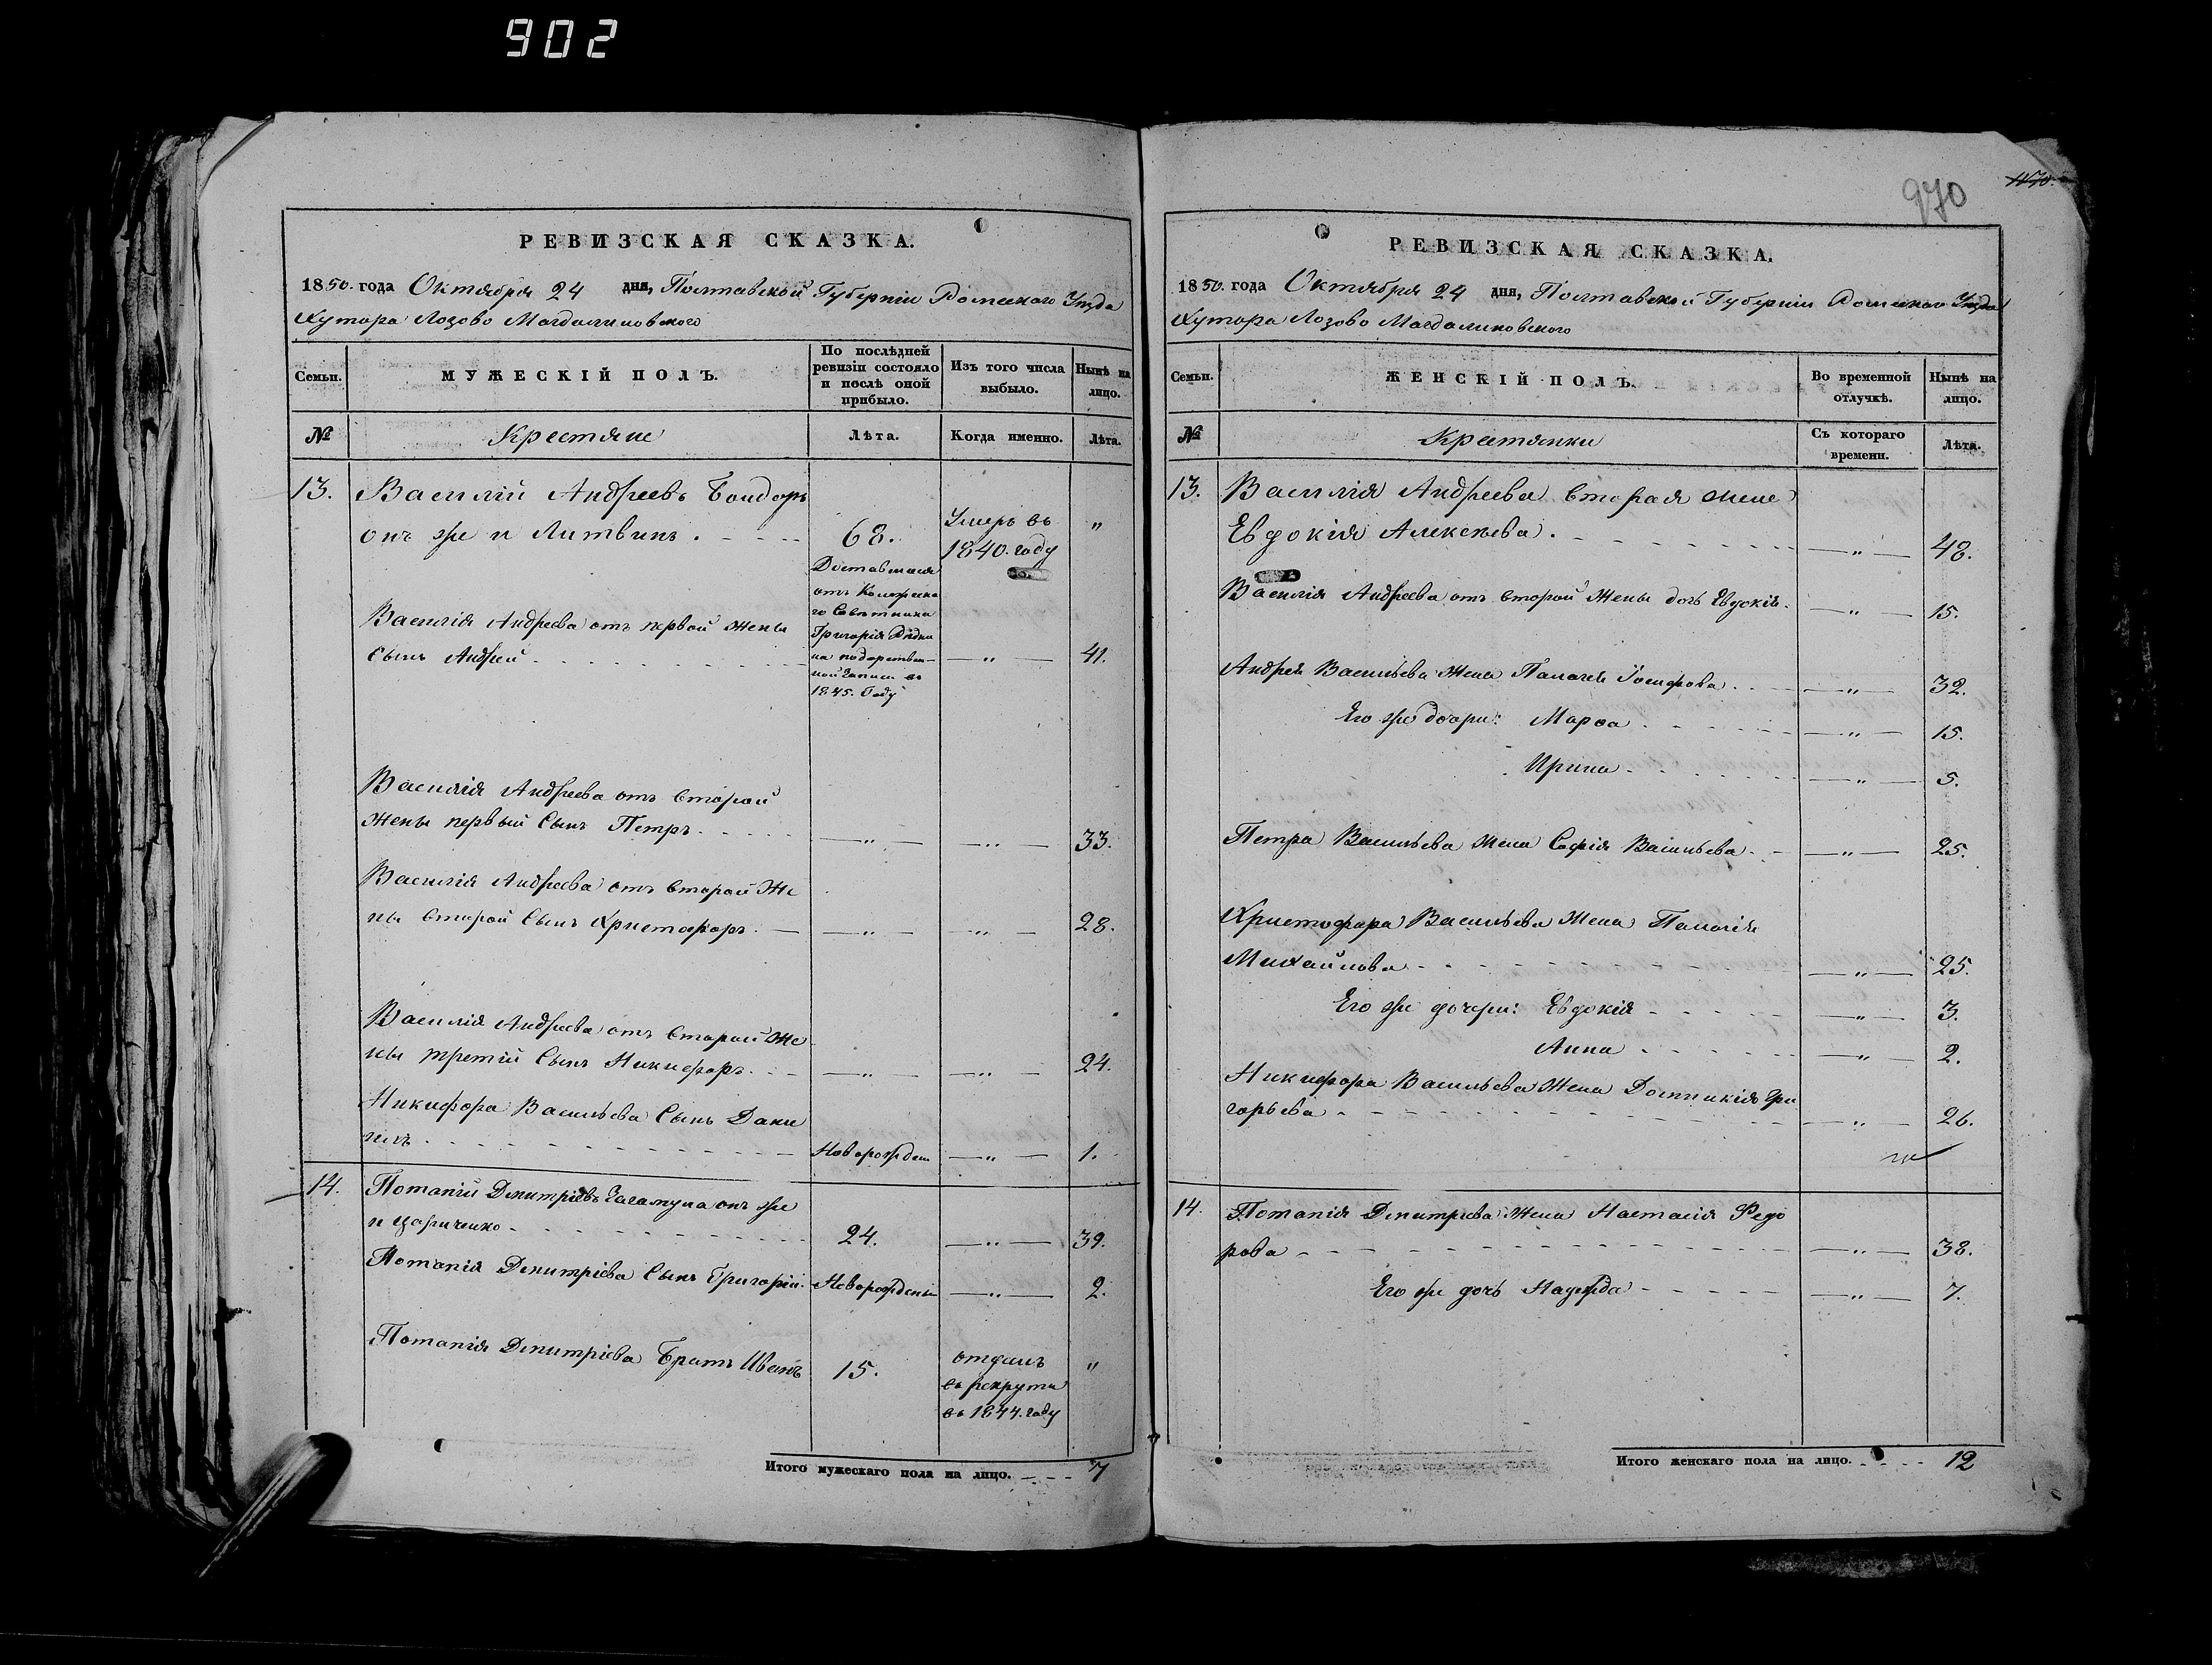 902
РЕВИЗСКАЯ СКАЗКА.
1850. года Октября 24 дня, Полтавской Губерніи Роменского Уѣзда
Хутора Лозово Магдалиновского
Семьи.
МУЖЕСКІЙ ПОЛЪ.
По послѣдней ревизіи состояло и послѣ оной прибыло.
Изъ того числа выбыло.
Нынѣ на лицо.
№
Крестяне
Лѣта.
Когда именно.
Лѣта.
13. Василій Андреевъ Бондарь
онъ же и Литвинъ. 68. Умеръ въ 1840. году "
Доставшися
отъ
го Совѣтника
Григорія
на подарствен-
ной записи въ
1845. Году
Василія Андреева отъ первой жены
Сынъ Андрей — " — 41.
Василія Андреева отъ второй
жены первый Сынъ Петръ. — " — — " — 33.
Василія Андреева отъ второй Же
ны второй Сынъ Христофоръ. — " — — " — 28.
Василія Андреева отъ второй Же
ны третій Сынъ Никифоръ. — " — — " — 24.
Никифора Васильева Сынъ Дани
илъ Новорожден — " — 1.
14. Потапій Дмитріевъ онъ же
и Цариченко 24. — " — 39.
Потапія Дмитріева Сынъ Григорій. Новорожденъ — " — 2.
Потапія Дмитріева Братъ Иванъ 15. отданъ "
въ рекруты
въ 1844. году
Итого мужескаго пола на лицо. 7
970
1070.
РЕВИЗСКАЯ СКАЗКА.
1850. года Октября 24 дня, Полтавской Губерніи Роменского Уѣзда
Хутора Лозово Магдалиновского
Семьи.
ЖЕНСКІЙ ПОЛЪ.
Во временной отлучкѣ.
Нынѣ на лицо.
№
Крестянки
Съ котораго времени.
Лѣта.
13. Василія Андреева вторая жена
Евдокія Алексѣева. — " — 48.
Василія Андреева отъ второй Жены дочь Евдокія. — " — 15.
Андрея Васильева Жена Палагея Іосифова. — " — 32.
Его же дочери: Марѳа — " — 15.
Ирина — " — 5.
Петра Васильева Жена Софія Васильева — " — 25.
Христофора Васильева Жена Палагія
Михайлова — " — 25.
Его же дочери: Евдокія — " — 3.
Анна — " — 2.
Никифора Васильева Жена Домникія Гри
горьева — " — 26.
14. Потапія Дмитріева Жена Настасія Федо
рова — " — 38.
Его же дочь Надежда — " — 7.
Итого женскаго пола на лицо. 12